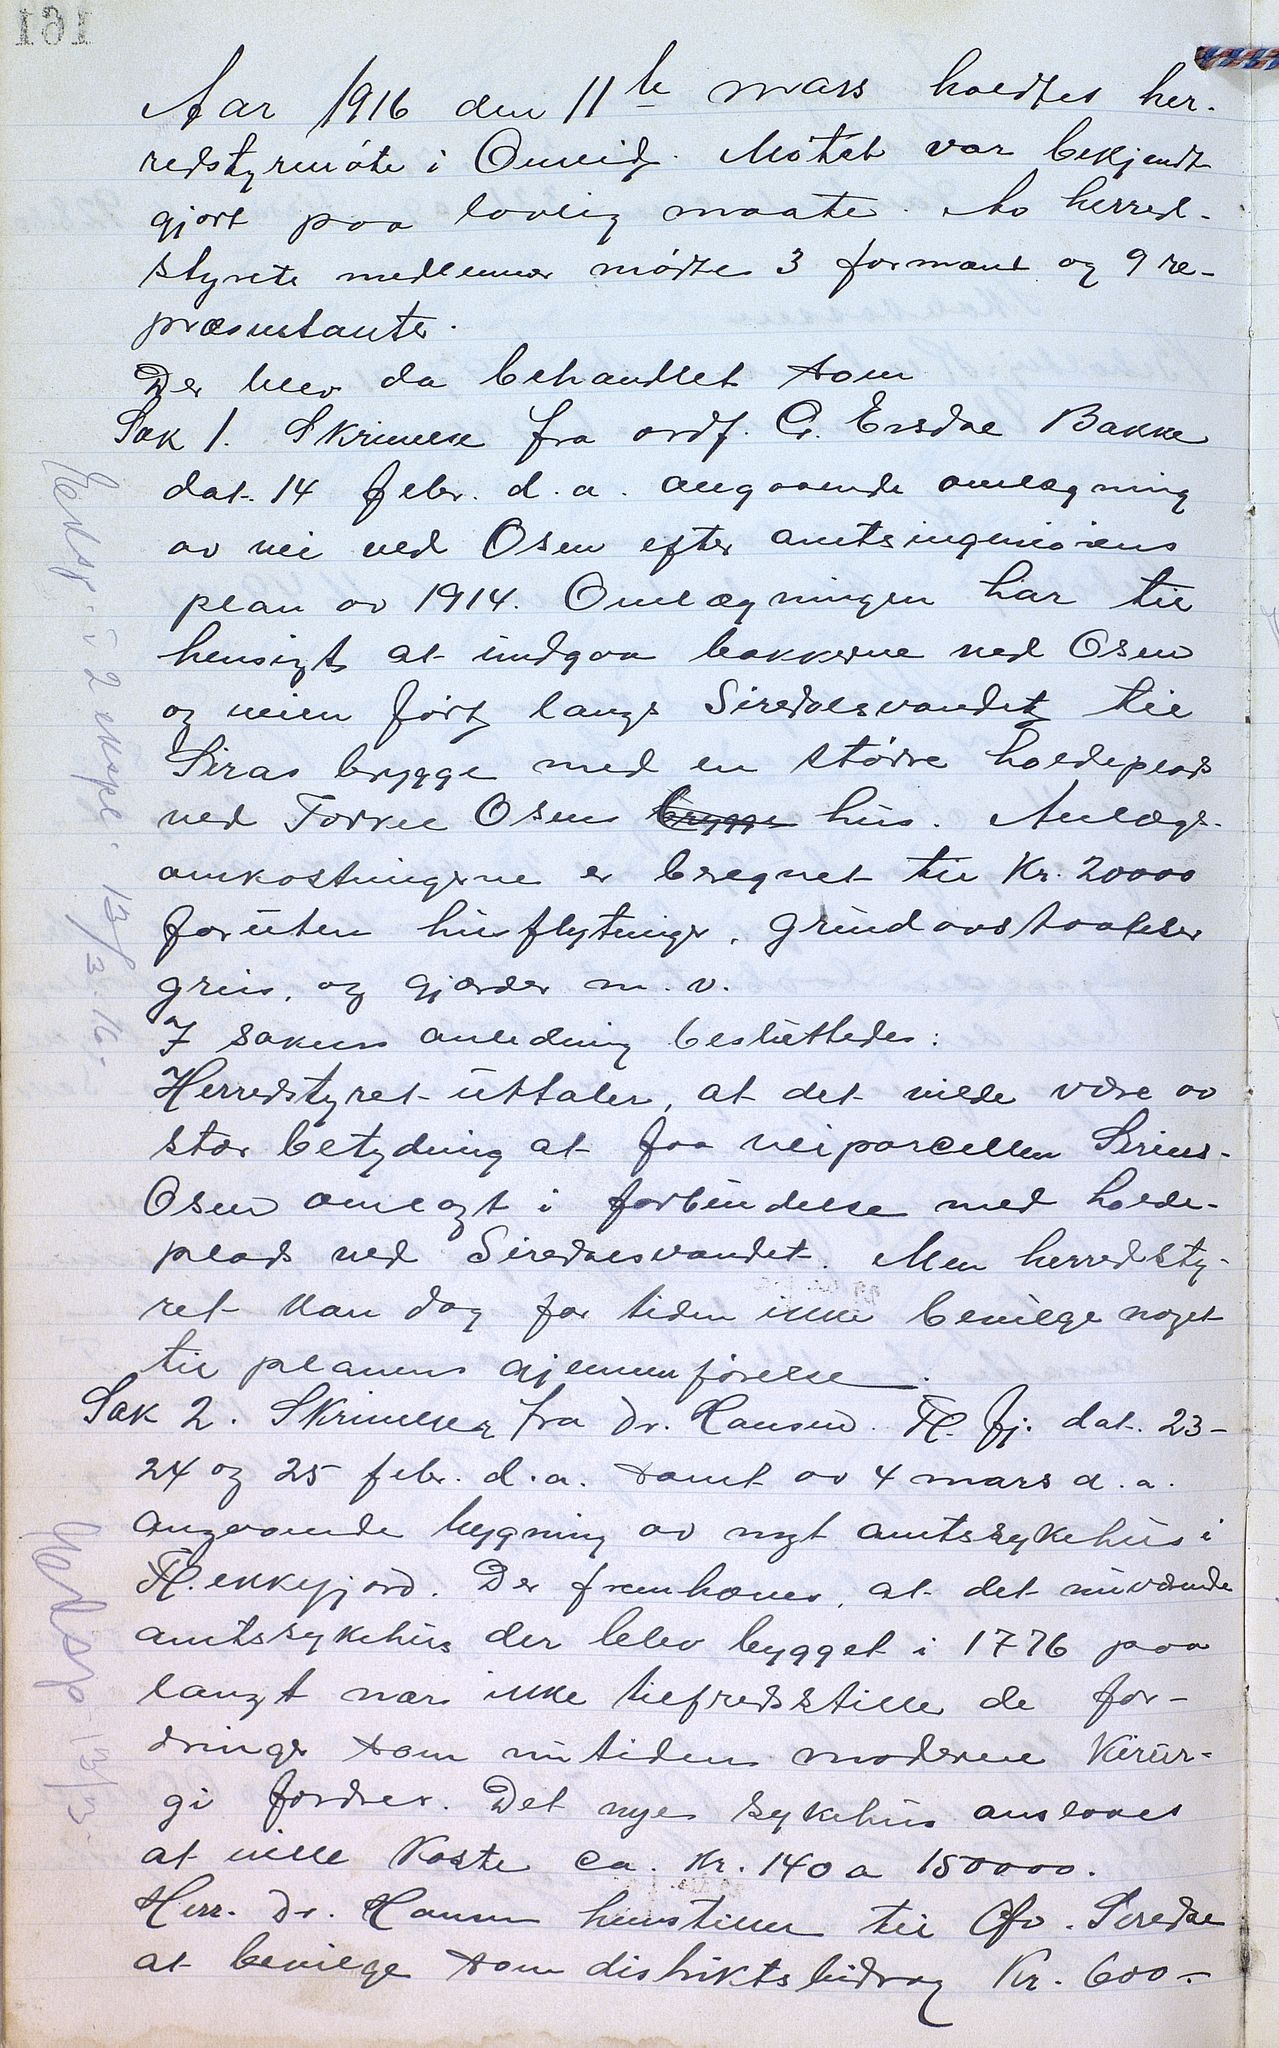 161
Aar 1916 den 11te mars holdtes her-
redstyrmöte i Omlid. Mötet var bekjendt
gjort paa lovlig maate. Av herred-
styrets medlemmer mødte 3 formænd og 9 re-
præsentanter.
Der blev da behandlet som
Sak 1. Skrivelse fra ordf. G. Ersdal Bakke
dat. 14 febr. d. a. angaaende omlægning
av vei ved Osen efter amtsingeniørens
plan av 1914. Omlægningen har til
hensigt at undgaa bakkerne ved Osen
og veien ført langs Siredalsvandet til
Siras brygge med en større holdeplads
ved Torkel Osens brygge hus. Anlægs-
omkostningerne er beregnet til Kr. 20000
foruten husflytninger, grundavstaaelser
grus, og gjærder m. v.
I sakens anledning besluttedes:
Herredstyret uttaler, at det vilde være av
stor betydning at faa veiparcellen Sirnes-
Osen omlagt i forbindelse med holde-
plads ved Siredalsvandet. Men herredsty-
ret kan dog for tiden ikke bevilge noget
til planens gjennemførelse.
Sak 2. Skrivelser fra Dr. Hansen. Fl. fj. dat. 23-
24 og 25 febr. d. a. samt av 4 mars d. a.
angaaende bygning av nyt amtssykehus i
Flekkefjord. Der fremhæves, at det nuværende
amtssykehus der blev bygget i 1776 paa
langt nær ikke tilfredsstiller de for-
dringer som nutidens moderne kirur-
gi fordrer. Det nye sykehus anslaaes
at ville koste ca. Kr. 140 a 150000.
Herr. Dr. Hansen henstiller til Øvr. Siredal
at bevilge som distriktsbidrag Kr. 600.-
Uteksp. i 2 ekspl. 13/3.16.
Uteksp. 13/3.